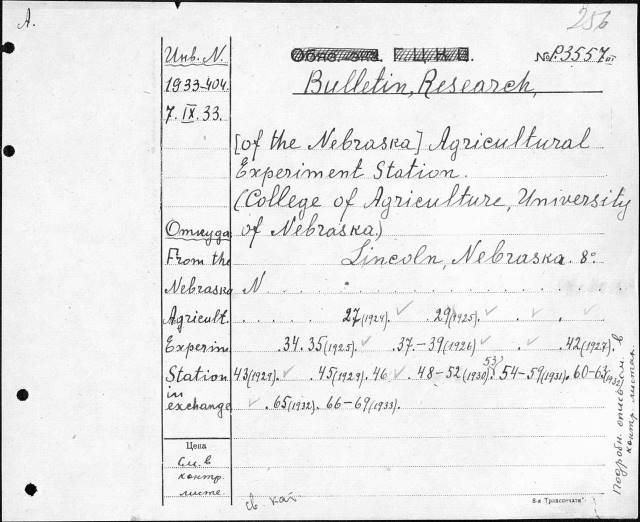 А.
256
Инв. N.
1933-404.
7.IX.33.
№ P.3557 III
Bulletin, Research,
[of the Nebraska] Agricultural
Experiment Station.
(College of Agriculture, University
of Nebraska.)
Lincoln, Nebraska. 8°
Откуда
From the
Nebraska
Agricult.
Experim.
Station
in
exchange
N . . . . . . . . .
. . . . 27(1924). ✓ 29(1925). ✓ . ✓ . ✓
. 34. 35(1925). ✓ . 37.-39(1926) ✓ . . . 42(1927).
43(1929). ✓ . 45(1929). 46 ✓ . 48-52(1930). 53/ 54-59(1931). 60-63(1932)
✓ . 65(1932). 66-69(1933).
Цена
См. в
контр.
листе.
св. кат
Подробн. опись см. в
контр. листах.
8-я "Транспечати"